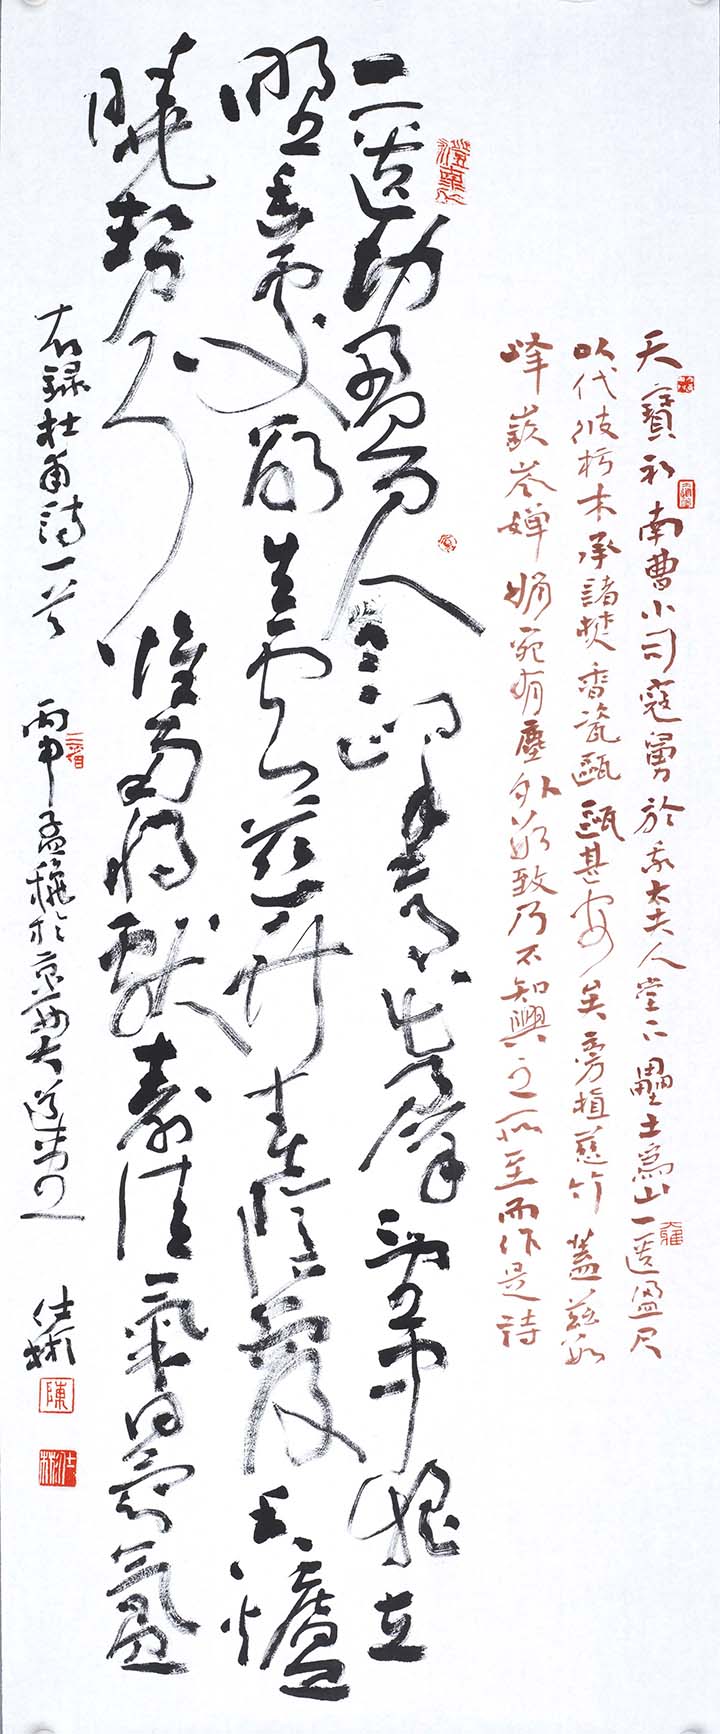 天寶初南曹小司寇舅於我太夫人堂下壘土爲山一匱盈尺
以代彼朽木承諸焚香瓷甌甌甚安矣旁植慈竹蓋茲數
峰嶔岑嬋娟宛有塵外數致乃不知興之所至而作是詩
一匱功盈尺三峰意出群望中疑在
野幽處欲生雲慈竹春陰覆香爐
曉勢分惟南將獻壽佳氣日氤氳
右録杜甫詩一首 丙申孟穐於京西大道書之 仕彬
陳
仕彬